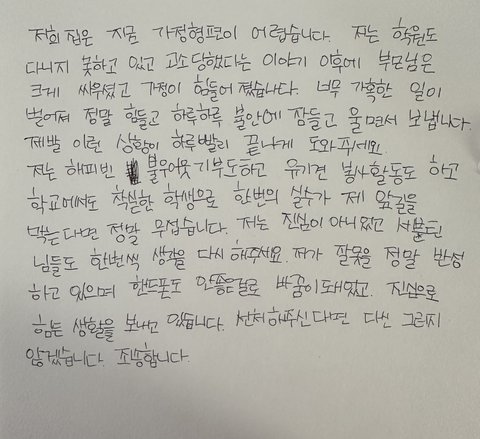 저희 집은 지금 가정형편이 어렵습니다. 저는 학원도
다니지 못하고 있고 고소 당했다는 이야기 이후에 부모님은
크게 싸우셨고 가정이 힘들어 졌습니다. 너무 가혹한 일이
벌어져 정말 힘들고 하루하루 불안에 잠들고 울면서 보냅니다.
제발 이런 상황이 하루빨리 끝나게 도와주세요.
저는 해피빈 불우이웃 기부도하고 유기견 봉사활동도 하고
학교에서도 착실한 학생으로 한번의 실수가 제 앞길을
막는다면 정말 무섭습니다. 저는 진심이 아니었고
님들도 한번씩 생각을 다시 해주세요. 저가 잘못을 정말 반성
하고 있으며 핸드폰도 안좋은걸로 바꿈이 되어있고. 진심으로
힘든 생활을 보내고 있습니다. 선처 해주신다면 다신 그러지
않겠습니다. 죄송합니다.